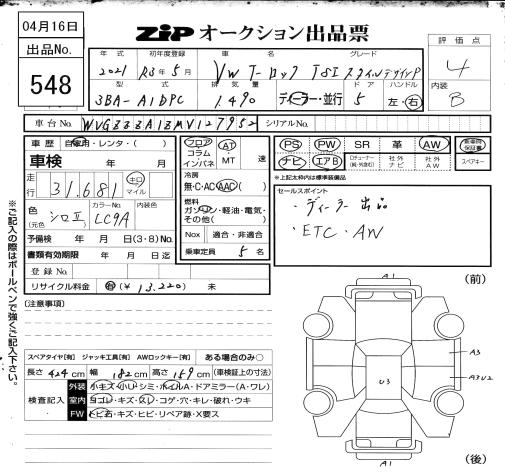 04月16日
ZiP オークション出品票
出品No.
548
年式 初年度登録 車名 グレード
2021 R3年5月 VW T-ロック TSI スタイルデザインP
型式 排気量 ドア ハンドル
3BA-A1DPC 1,490 ディーラー・並行 5 左・右
評価点
4
内装
B
車台No. WVGZZZA1ZMV127952 シリアルNo.
車歴 自家用・レンタ・( )
車検 年 月
走行 31,681 キロ マイル
色(元色) シロII カラーNo. LC9A 内装色
予備検 年 月 日(3・8)No.
書類有効期限 年 月 日迄
登録No.
リサイクル料金 有(¥ 13,220) 未
フロア コラム インパネ AT・MT 速
冷房
無・C・AC・AAC( )
燃料
ガソリン・軽油・電気・その他( )
Nox 適合・非適合
乗車定員 5 名
PS PW SR 革 AW 新車時保証書
ナビ エアB 社外ナビ 社外AW スペアキー
*上記太枠内は標準装備品
セールスポイント
・ディーラー出品
・ETC・AW
※ご記入の際はボールペンで強くご記入下さい。
(注意事項)
スペアタイヤ[有] ジャッキ工具[有] AWロックキー[有] ある場合のみ○
長さ 424 cm 幅 182 cm 高さ 159 cm (車検証上の寸法)
検査記入
外装 小キズ・小U・シミ・ホイルA・ドアミラー(A・ワレ)
室内 ヨゴレ・キズ・スレ・コゲ・穴・キレ・破れ・ウキ
FW トビ石・キズ・ヒビ・リペア跡・X要ス
(前)
A1
A3
U3
A3U2
A1
(後)